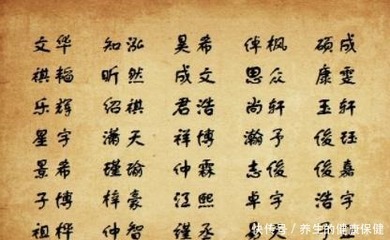 文华 知泓 昊希 倬枫 硕成
祺韬 昕然 成文 思众 康雯
乐辉 绍祺 君浩 尚轩 玉轩
星宇 满天 祥博 瀚予 俊珏
景希 瑾瑜 仲霖 志俊 俊嘉
子博 梓豪 江熙 卓宇 浩宇
祖桦 仲智 瑾丞
快传号 / 养生的健康保健